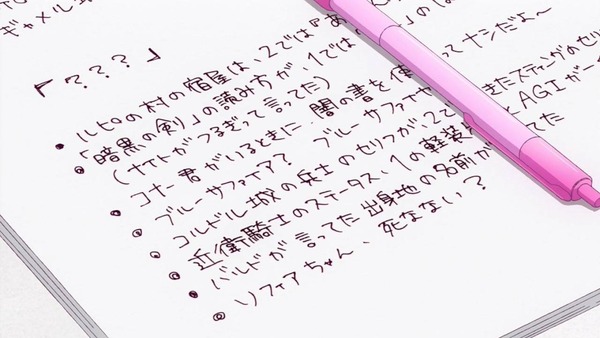 ギャメル
『???』
・ルピロの村の宿屋は、2では『あ
・『暗黒の剣』の読み方が、1では
(ナイトがつるぎって言ってた)
・コナー君がいるときに、闇の書を使 って ナシだよ〜
・ブルーサファイア? ブルーサファイヤ
◎コルドル城の兵士のセリフが2で きたスティングのセリ
◎近衛騎士のステータス、1の軽装 とAGIが
◎バルドが言ってた出身地の名前が てた
◎ソフィアちゃん、死なない?